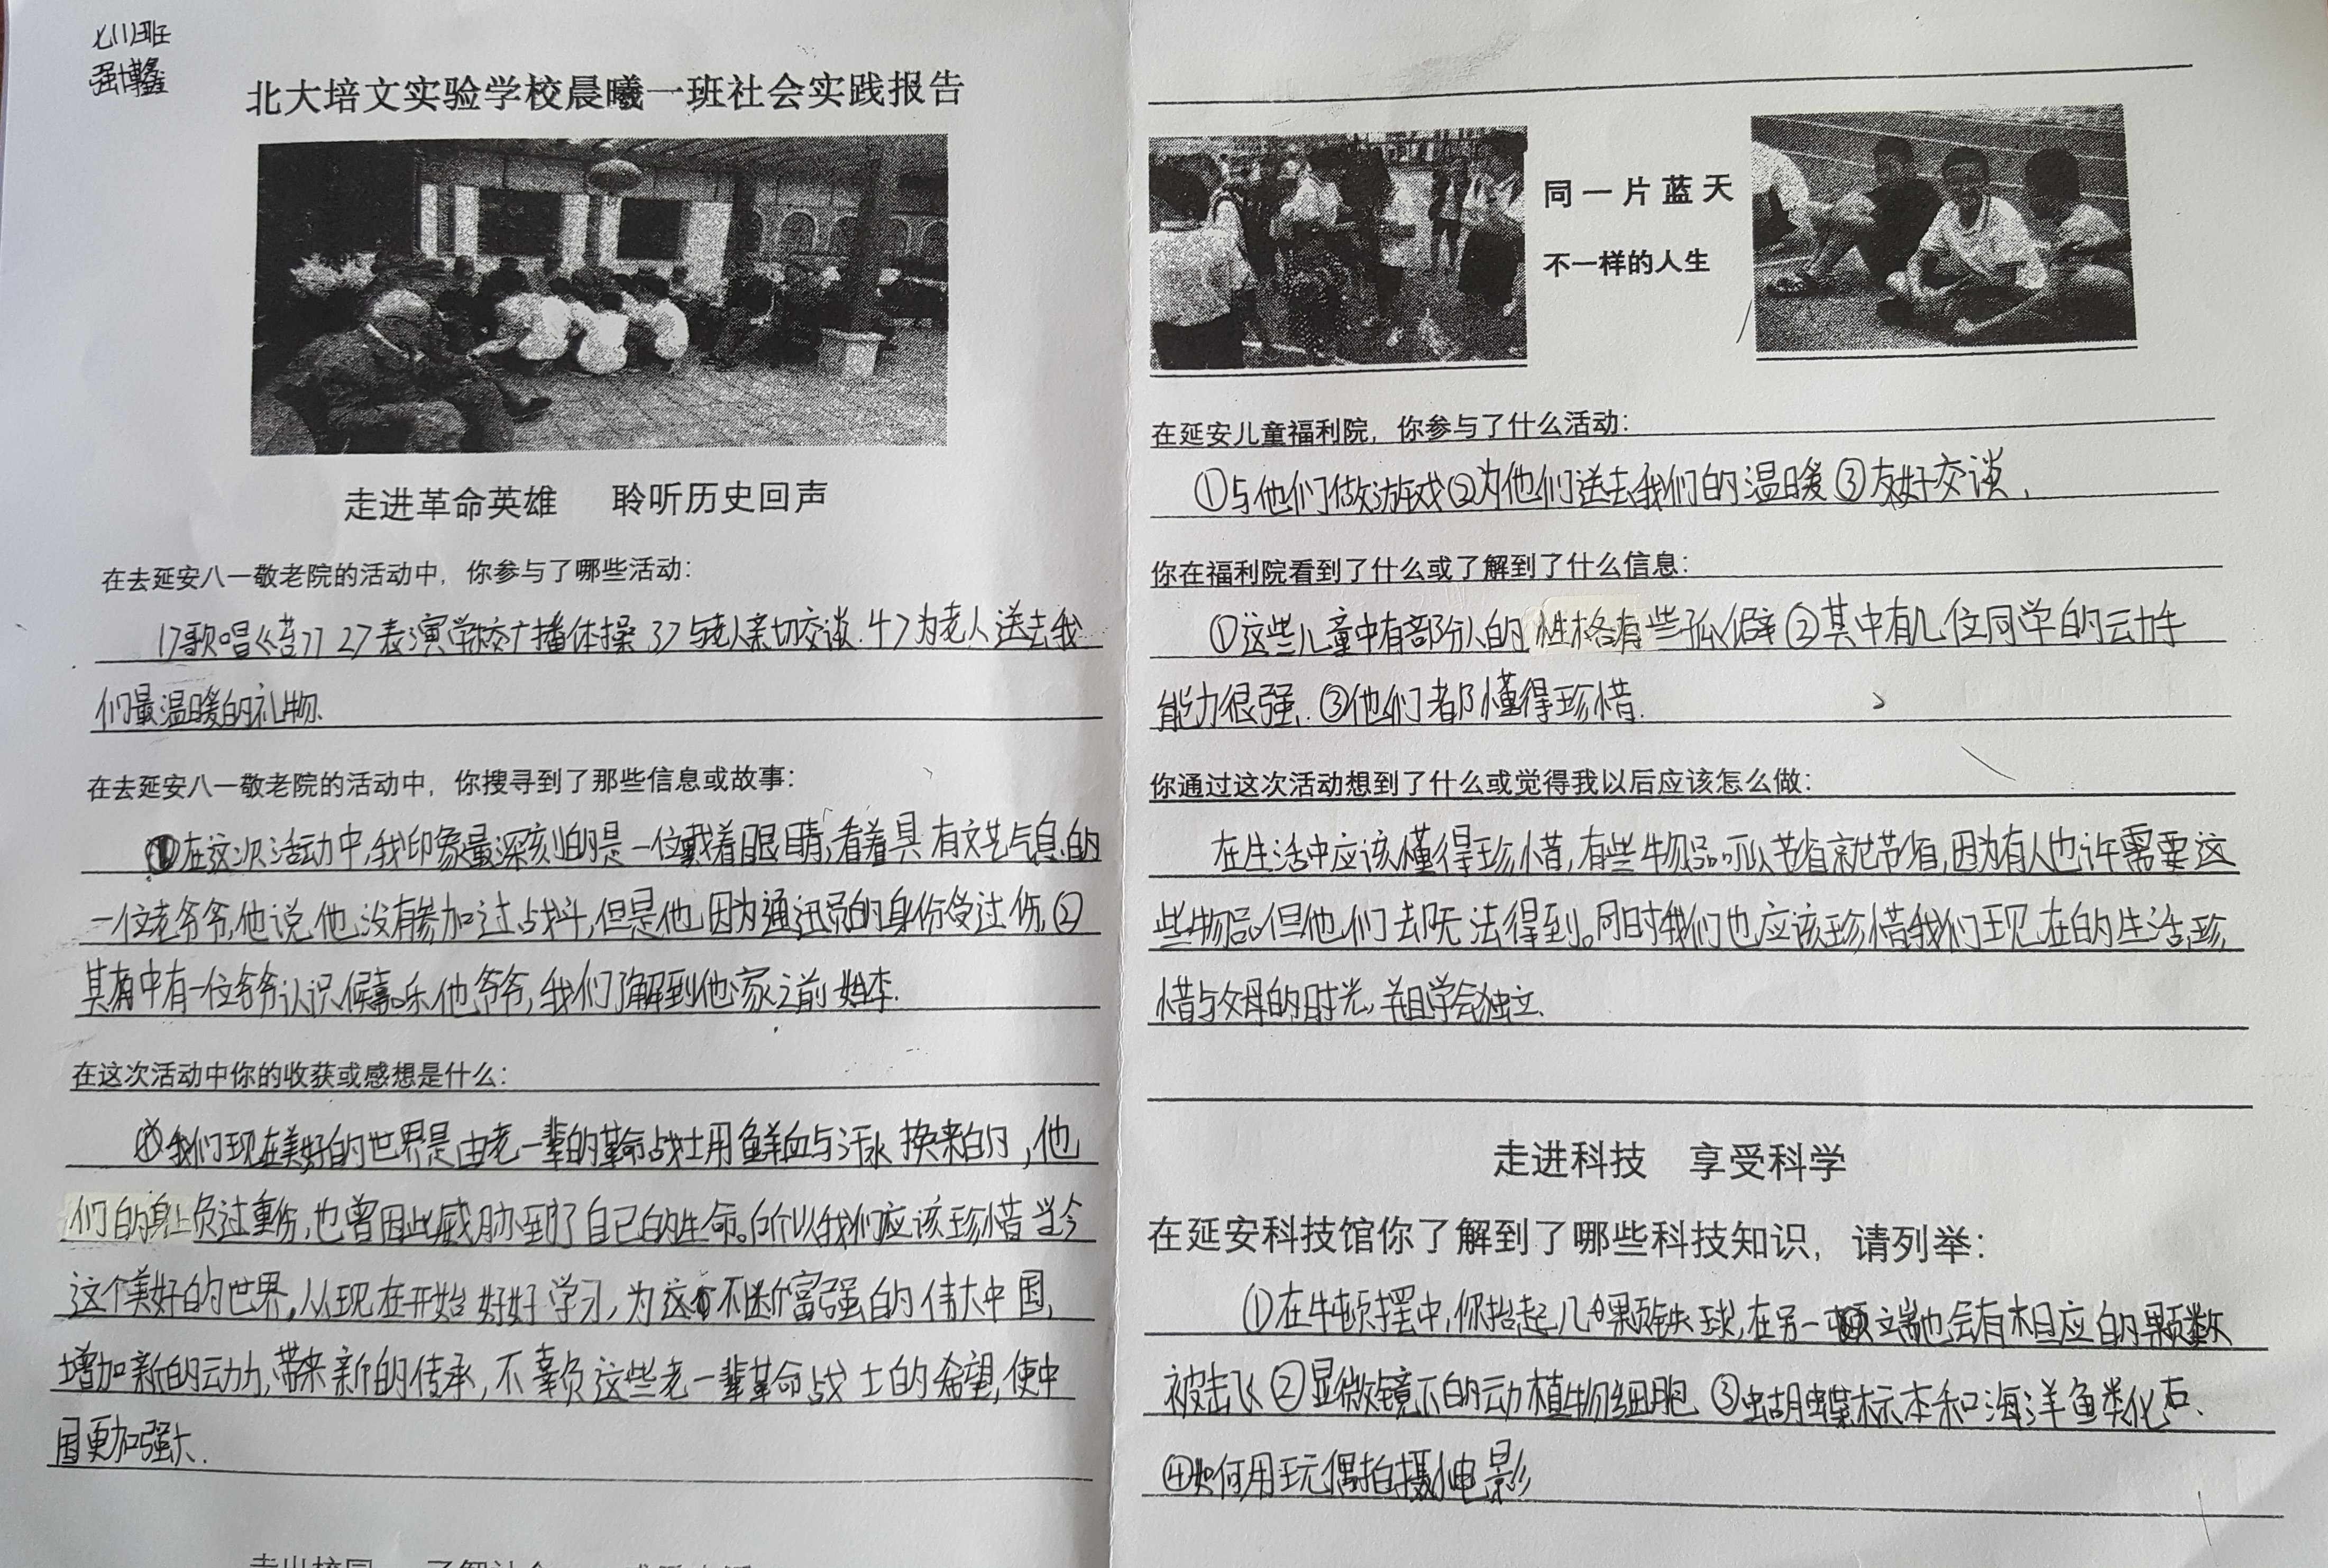 七(1)班
强博鑫
北大培文实验学校晨曦一班社会实践报告
走进革命英雄 聆听历史回声
在去延安八一敬老院的活动中，你参与了哪些活动：
1>歌唱《苔》 2>表演学校广播体操 3>与老人亲切交谈.4>为老人送去我
们最温暖的礼物.
在去延安八一敬老院的活动中，你搜寻到了那些信息或故事：
①在这次活动中,我印象最深刻的是一位戴着眼睛,看着具有文艺气息的
一位老爷爷,他说他没有参加过战斗,但是他因为通讯员的身份受过伤.②
其中有一位爷爷认识候嘉乐他爷爷,我们了解到他家之前姓李.
在这次活动中你的收获或感想是什么：
我们现在美好的世界是由老一辈的革命战士用鲜血与汗水换来的,他
们的身上负过重伤,也曾因此威胁到了自己的生命。所以我们应该珍惜当今
这个美好的世界,从现在开始好好学习,为这个不断富强的伟大中国,
增加新的动力,带来新的传承,不辜负这些老一辈革命战士的希望,使中
国更加强大.
同一片蓝天
不一样的人生
在延安儿童福利院，你参与了什么活动：
①与他们做游戏②为他们送去我们的温暖③友好交谈.
你在福利院看到了什么或了解到了什么信息：
①这些儿童中有部分人的性格有些孤僻②其中有几位同学的动手
能力很强.③他们都懂得珍惜.
你通过这次活动想到了什么或觉得我以后应该怎么做：
在生活中应该懂得珍惜,有些物品可以节省就节省,因为有人也许需要这
些物品但他们却无法得到。同时我们也应该珍惜我们现在的生活,珍
惜与父母的时光,并且学会独立.
走进科技 享受科学
在延安科技馆你了解到了哪些科技知识，请列举：
①在牛顿摆中,你抬起几颗铁球,在另一端也会有相应的颗数
被击飞②显微镜下的动植物细胞 ③蝴蝶标本和海洋鱼类化石、
④如何用玩偶拍摄电影